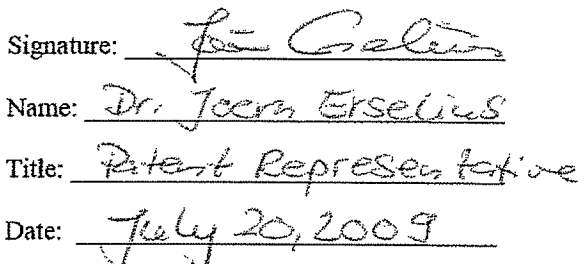 Signature: Jörn Erselius
Name: Dr. Joern Erselius
Title: Patent Representative
Date: July 20, 2009